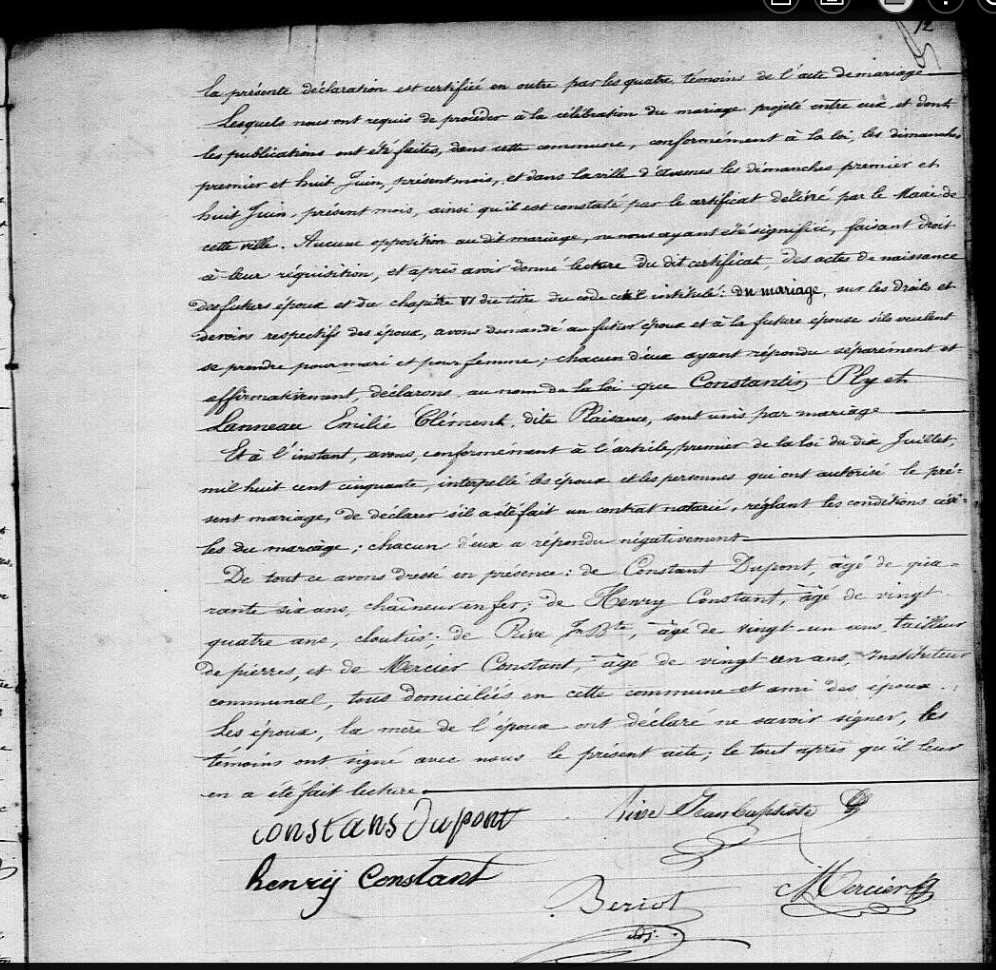 12
la présente déclaration est certifiée en outre par les quatre témoins de l'acte de mariage
Lesquels nous ont requis de procéder à la célébration du mariage projeté entre eux, et dont
les publications ont été faites, dans cette commune, conformément à la loi, les dimanches
premier et huit Juin, présent mois, et dans la ville d'avesnes les dimanches premier et
huit Juin, présent mois, ainsi qu'il est constaté par le certificat délivré par le Maire de
cette ville. Aucune opposition au dit mariage, ne nous ayant été signifiée, faisant droit
à leur réquisition, et après avoir donné lecture du dit certificat, des actes de naissance
des futurs époux et du chapitre VI du titre du code civil intitulé: du mariage, sur les droits et
devoirs respectifs des époux, avons demandé au futur époux et à la future épouse s'ils veulent
se prendre pour mari et pour femme; chacun d'eux ayant répondu séparément et
affirmativement, déclarons, au nom de la loi que Constantin Ply et
Lanneau Emilie Clément, dite Plaisance, sont unis par mariage
Et à l'instant, avons, conformément à l'article premier de la loi du dix Juillet,
mil huit cent cinquante, interpellé les époux et les personnes qui ont autorisé le pré-
sent mariage, de déclarer s'il a été fait un contrat notarié, réglant les conditions civi-
les du mariage; chacun d'eux a répondu négativement
De tout ce avons dressé en présence: de Constant Dupont, âgé de qua-
rante six ans, chaîneur en fer; de Henry Constant, âgé de vingt
quatre ans, cloutier; de Rive Jn Bte, âgé de vingt-un ans tailleur
de pierres, et de Mercier Constant, âgé de vingt un ans, Instituteur
communal, tous domiciliés en cette commune et ami des époux.
Les époux, la mère de l'époux ont déclaré ne savoir signer, les
témoins ont signé avec nous le présent acte; le tout après qu'il leur
en a été fait lecture.
constans dupont
Rive Jean baptiste
henrÿ Constant
Mercier
Beriot
adj.